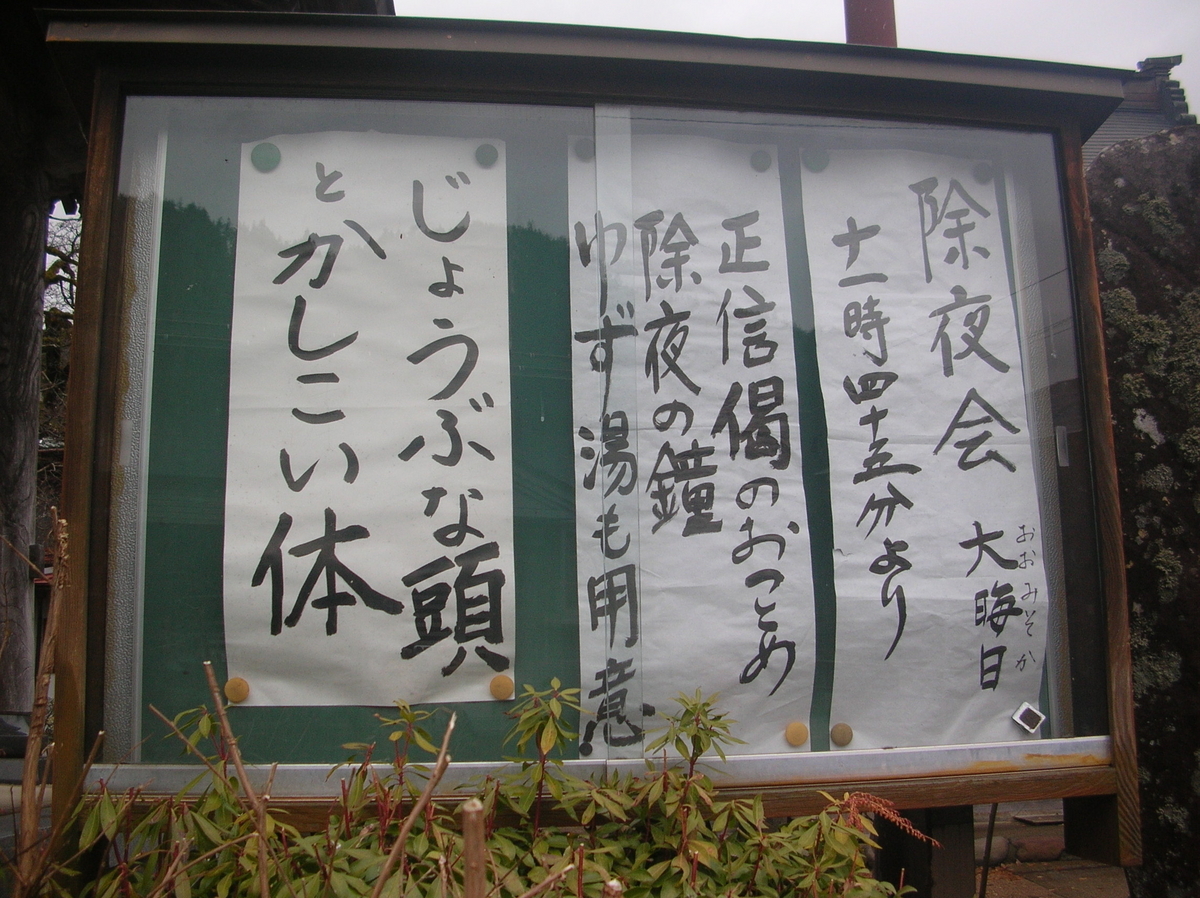 除夜会 大晦日
おおみそか
十一時四十五分より
正信偈のおつとめ
除夜の鐘
ゆず湯も用意
じょうぶな頭
とかしこい体